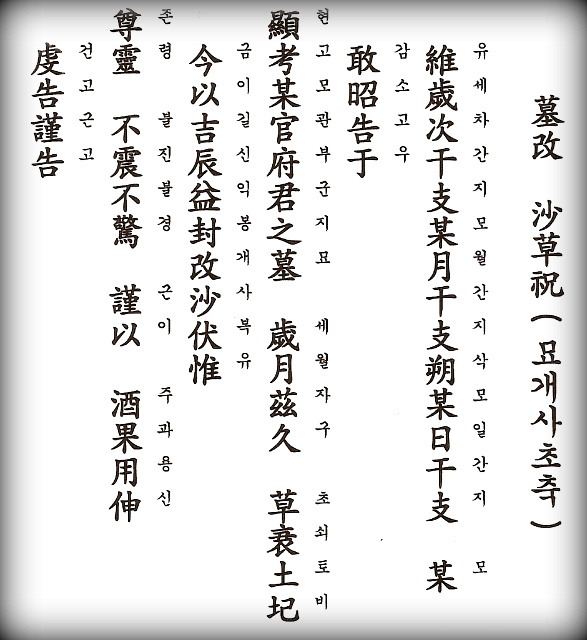 墓改 沙草祝(묘개사초축)
유세차간지모월간지삭모일간지 모
維歲次干支某月干支朔某日干支 某
감소고우
敢昭告于
현고모관부군지묘 세월자구 초쇠토비
顯考某官府君之墓 歲月茲久 草衰土圮
금이길신익봉개사복유
今以吉辰益封改沙伏惟
존령 불진불경 근이 주과용신
尊靈 不震不驚 謹以 酒果用伸
건고근고
虔告謹告